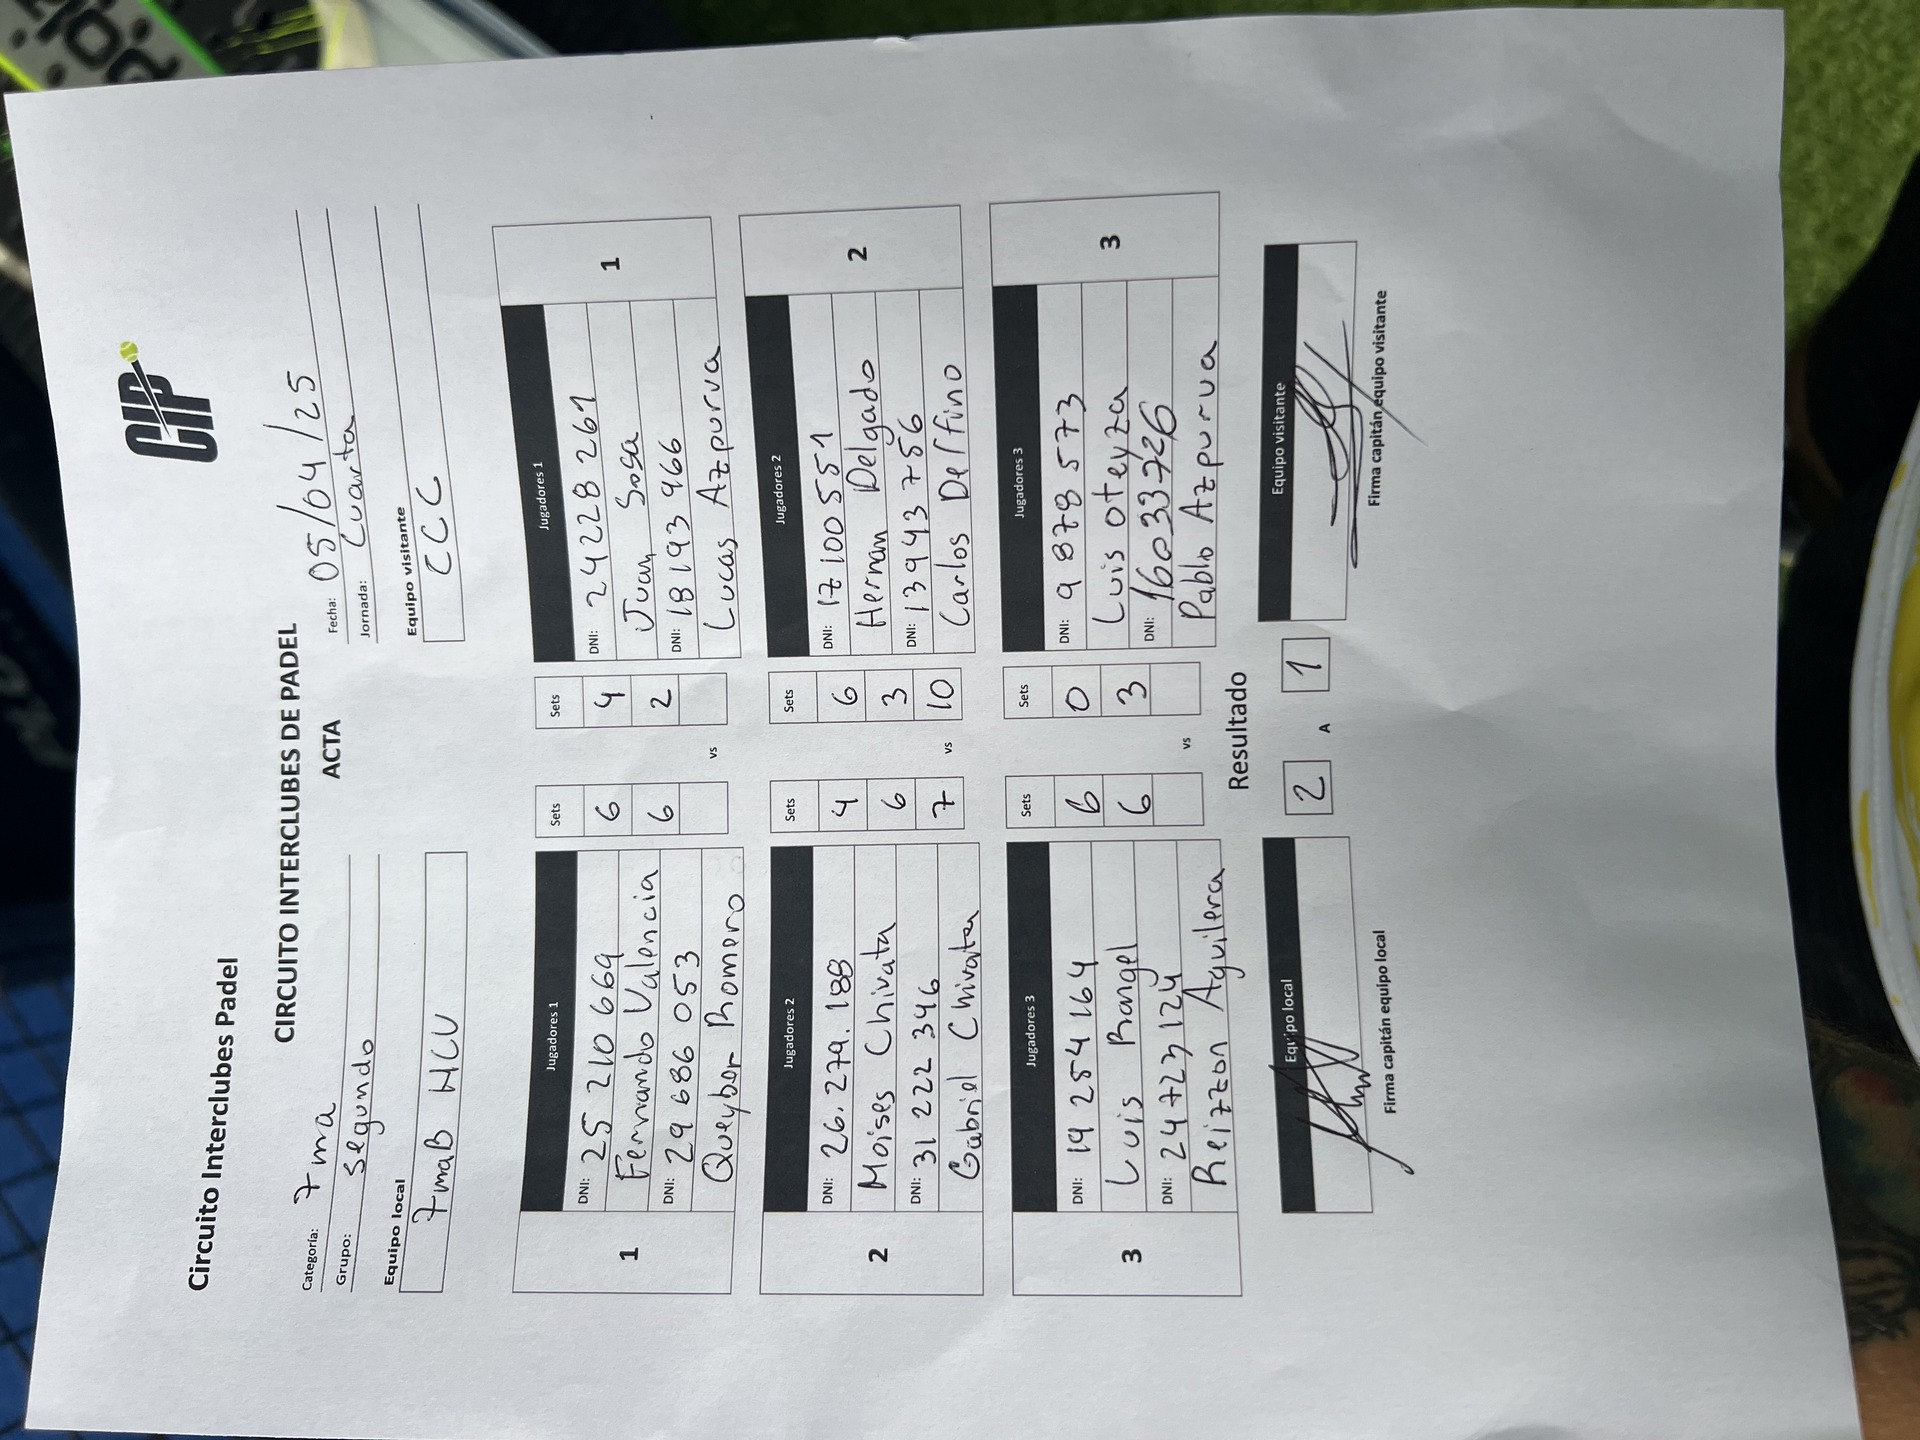 Circuito Interclubes Padel
CIP
CIRCUITO INTERCLUBES DE PADEL
ACTA
Categoría: 7ma
Fecha: 05/04/25
Grupo: segundo
Jornada: Cuarta
Equipo local
Equipo visitante
7maB HCU
CCC
Jugadores 1 Sets Sets Jugadores 1
1 DNI: 25 210 669 6 4 DNI: 24228261 1
Fernando Valencia 6 2 Juan Sosa
DNI: 29 686 053 DNI: 18193966
Queybor Romero vs Lucas Azpurua
Jugadores 2 Sets Sets Jugadores 2
2 DNI: 26.279.188 4 6 DNI: 17100551 2
Moises Chivata 6 3 Hernan Delgado
DNI: 31 222 346 7 10 DNI: 13943756
Gabriel Chivata vs Carlos Delfino
Jugadores 3 Sets Sets Jugadores 3
3 DNI: 19 254 164 6 0 DNI: 9878573 3
Luis Rangel 6 3 Luis Oteyza
DNI: 24723124 DNI: 16033726
Reizzon Aguilera vs Pablo Azpurua
Resultado
Equipo local 2 A 1 Equipo visitante
Firma capitán equipo local
Firma capitán equipo visitante